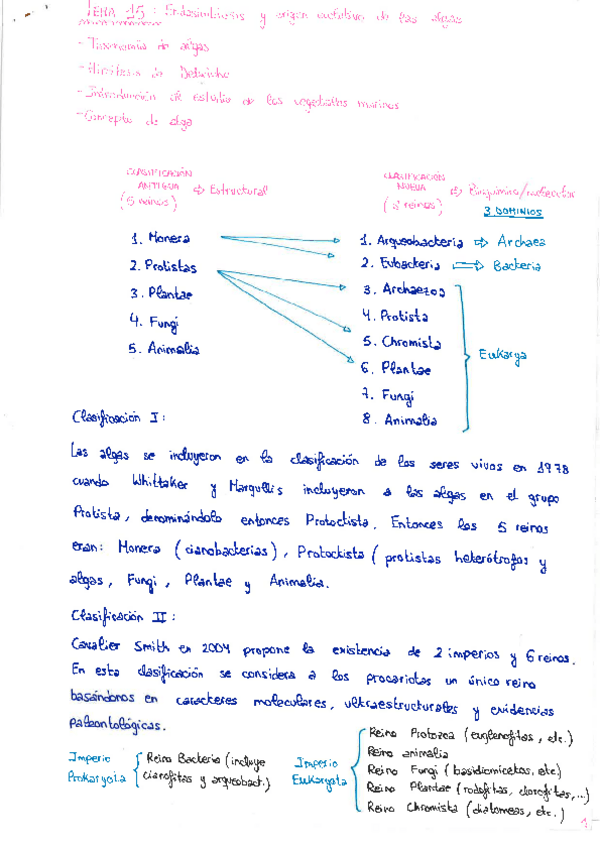 TEMA 15: Endosimbiosis y origen evolutivo de las algas
- Taxonomía de algas
- Hipótesis de
- Introducción al estudio de los vegetales marinos
- Concepto de alga
CLASIFICACIÓN ANTIGUA (5 reinos) ⇨ Estructural
CLASIFICACIÓN NUEVA (8 reinos) ⇨ Bioquímica/molecular
3 DOMINIOS
1. Monera
2. Protistas
3. Plantae
4. Fungi
5. Animalia
1. Arqueobacteria ⇨ Archaea
2. Eubacteria ⇨ Bacteria
3. Archaezoa
4. Protista
5. Chromista
6. Plantae
7. Fungi
8. Animalia
Eukarya
Clasificación I:
Las algas se incluyeron en la clasificación de los seres vivos en 1978
cuando Whittaker y Margullis incluyeron a las algas en el grupo
Protista, denominándolo entonces Protoctista. Entonces los 5 reinos
eran: Monera (cianobacterias), Protoctista (protistas heterótrofos y
algas, Fungi, Plantae y Animalia.
Clasificación II:
Cavalier Smith en 2004 propone la existencia de 2 imperios y 6 reinos.
En esta clasificación se considera a los procariotas un único reino
basándonos en caracteres moleculares, ultraestructurales y evidencias
paleontológicas.
Imperio Prokaryota
Reino Bacteria (incluye
cianofitas y arqueobact.)
Imperio Eukaryota
Reino Protozoa (euglenofitas, etc.)
Reino animalia
Reino Fungi (basidiomicetos, etc)
Reino Plantae (rodofitas, clorofitas,...)
Reino Chromista (diatomeas, etc.)
1